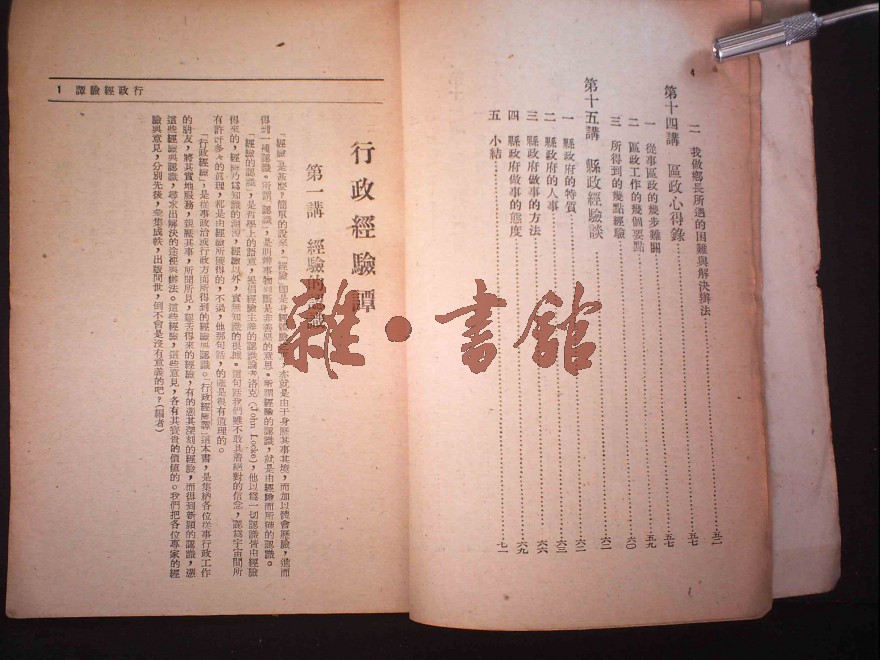 4
二 我做鄉長所遇的困難與解決辦法……五二
第十四講 區政心得錄……五七
一 從事區政的幾步難關……五七
二 區政工作的幾個要點……五九
三 所得到的幾點經驗……六〇
第十五講 縣政經驗談……六二
一 縣政府的特質……六二
二 縣政府的人事……六三
三 縣政府做事的方法……六六
四 縣政府做事的態度……六九
五 小結……七一
行政經驗譚 1
行政經驗譚
第一講 經驗的認識
「經驗」是甚麼?簡單的說來,「經驗」卽是身經體驗,亦就是由于身歷其事其境,而加以體會歷驗,進而
得到一種認識。所謂「認識」,是明辨事物判斷是非善惡的意思。所謂經驗的認識,就是由經驗而所獲的認識。
「經驗的認識」,是哲學上的語意,提倡經驗主義的認識論者洛克(John Locke),他以為一切認識皆由經驗
得來的,經驗乃為知識的淵源,經驗以外,實無知識的根據。這句話我們雖不敢具着絕對的信念,認為宇宙間所
有許許多多的眞理,都是由經驗所獲得的,不過,他那句話,的確是很有道理的。
「行政經驗」,是從事政治或行政方面所得到的經驗與認識。「行政經驗譚」這本書,是集納各位從事行政工作
的朋友,將其實地服務,親歷其事,所聞所見,
得來的經驗,有的憑其深刻的經驗,而得到新穎的認識,憑
這些經驗與認識,尋求出解決的途徑與辦法。這些經驗,這些意見,各有其寶貴的價値的。我們把各位專家的經
驗與意見,分別先後,彙集成帙,出版問世,倒不會是沒有意義的吧?(編者)
雜·書館